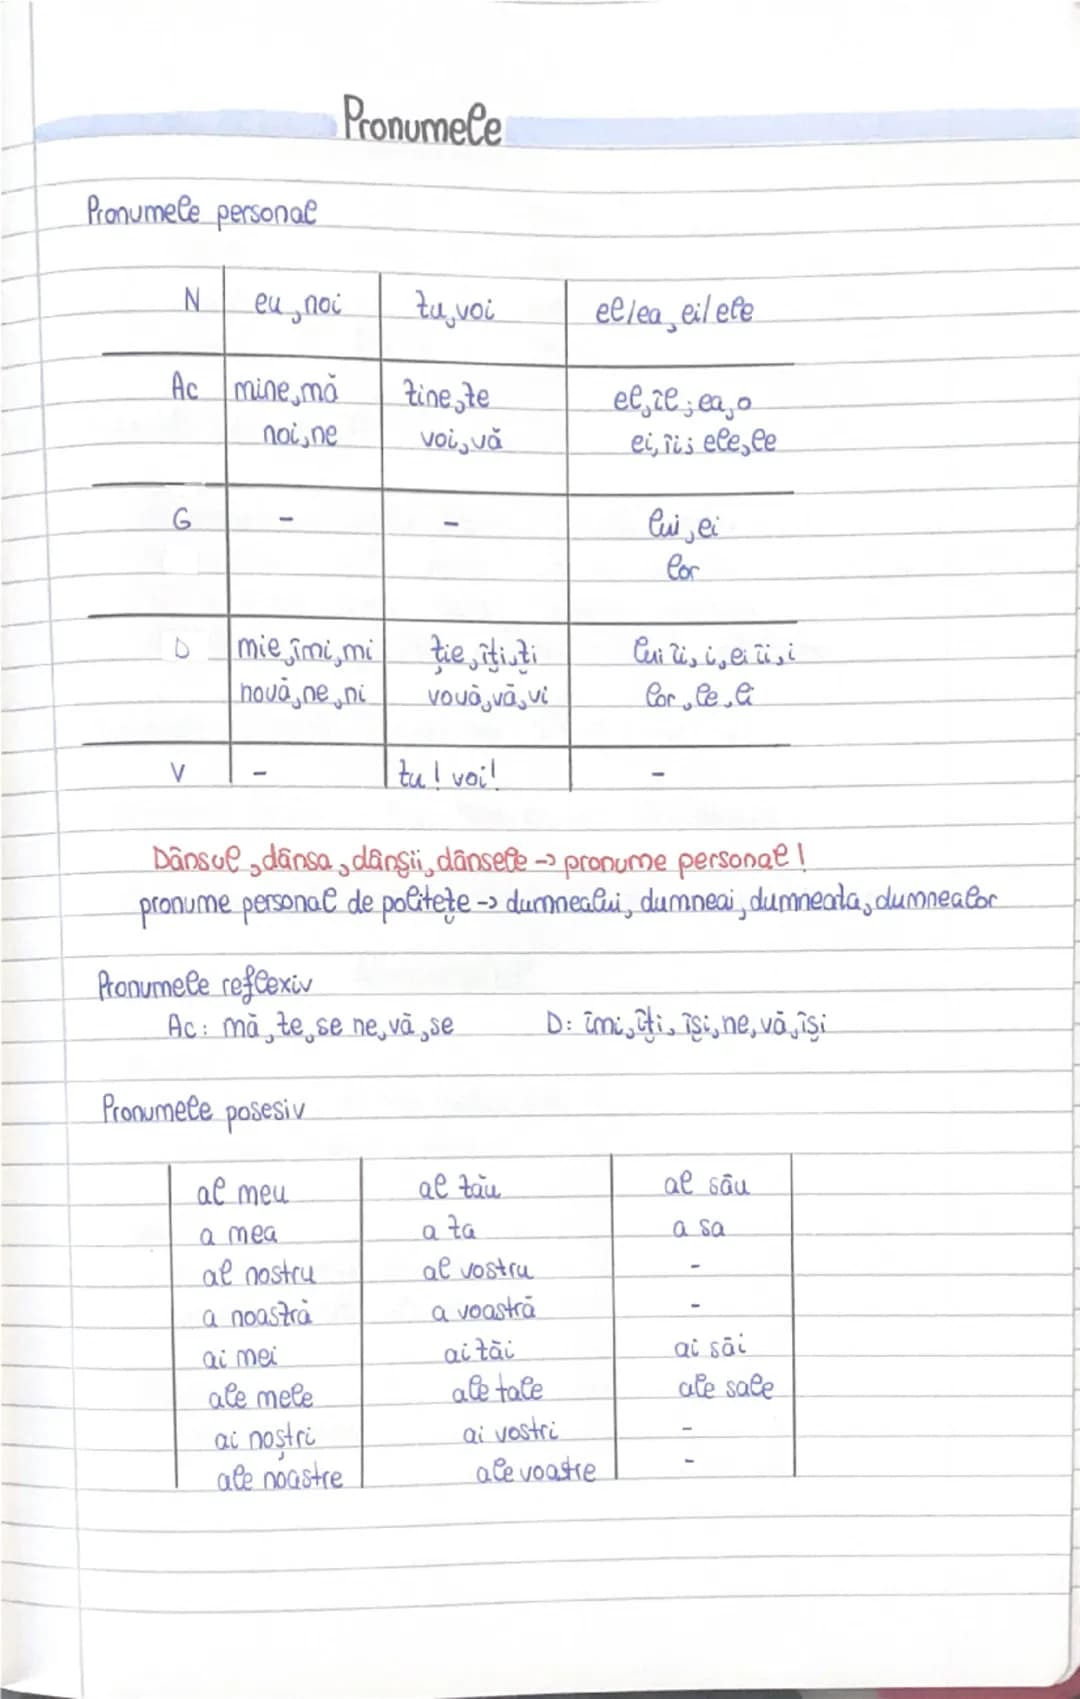 Pronumele
Pronumele personal
N eu, noi tu, voi el/ea, ei/ele
Ac mine, mă tine, te el, îl; ea, o
noi, ne voi, vă ei, îi; ele, le
G - - lui, ei
lor
D mie, îmi, mi ție, îți, ți lui îi, i, ei îi, i
nouă, ne, ni vouă, vă, vi lor, le, li
V - tu! voi! -
Dânsul, dânsa, dânșii, dânsele -> pronume personal!
pronume personal de politețe -> dumnealui, dumneai, dumneata, dumnealor
Pronumele reflexiv
Ac: mă, te, se ne, vă, se D: îmi, îți, își, ne, vă, își
Pronumele posesiv
al meu al tău al său
a mea a ta a sa
al nostru al vostru -
a noastră a voastră -
ai mei ai tăi ai săi
ale mele ale tale ale sale
ai noștri ai vostri -
ale noastre ale voastre -